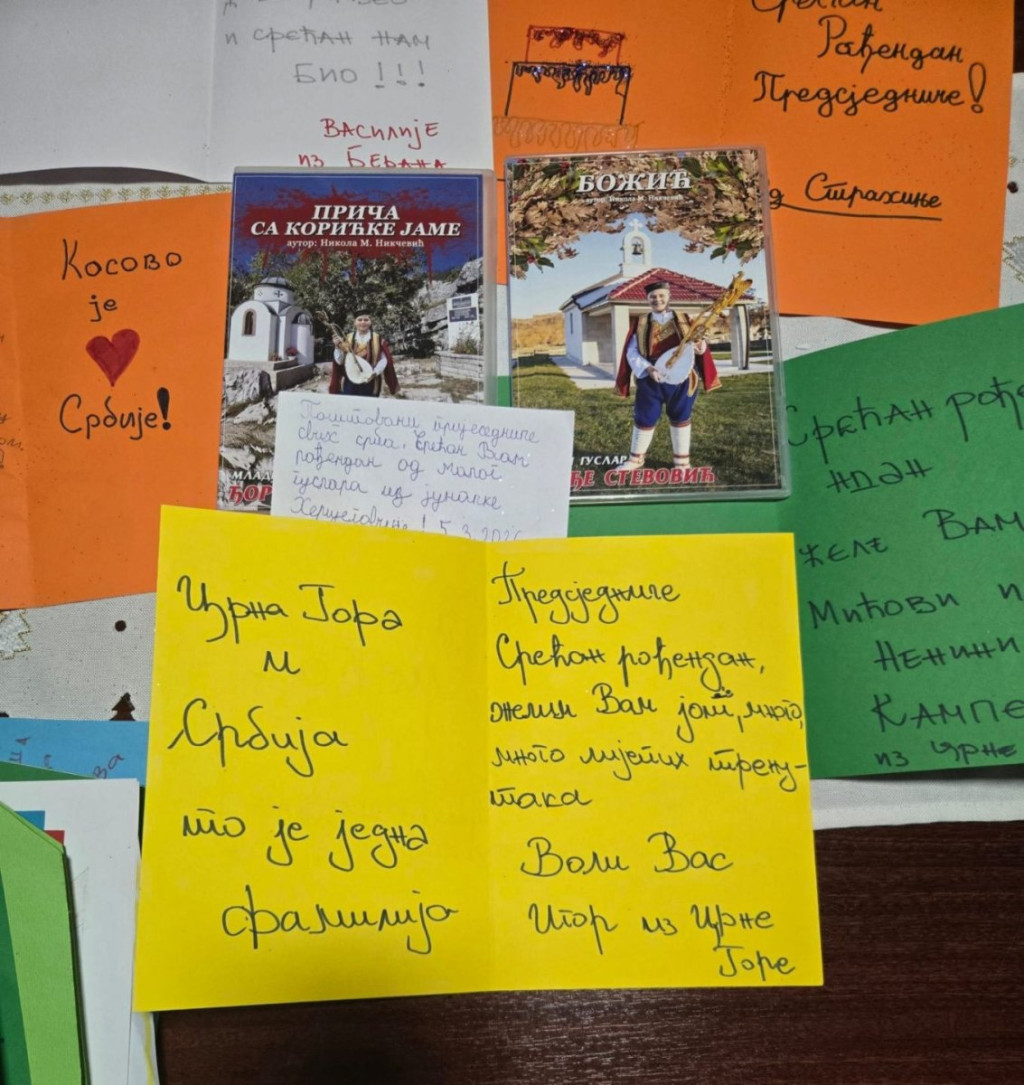 и срећан нам
био !!!
Василије
из Берана
Рађендан
Предсједниче!
Страхиње
Косово
је
Србије!
ПРИЧА
СА КОРИЋКЕ ЈАМЕ
аутор: Никола М. Никчевић
БОЖИЋ
аутор: Никола М. Никчевић
ГУСЛАР
ЂЕ СТЕВОВИЋ
МЛАД
ЂОР
Поштовани
свих срба, срећан Вам
рођендан од малог
гуслара из јуначке
Херцеговине! 5.3.
Срећан рође
ндан
желе Вам
Мићови и
Ненини
Кампе
из Црне
Црна Гора
и
Србија
то је једна
фамилија
Предсједниче
Срећан рођендан,
желим Вам још, много,
много лијепих трену-
така
Воли Вас
Игор из Црне
Горе